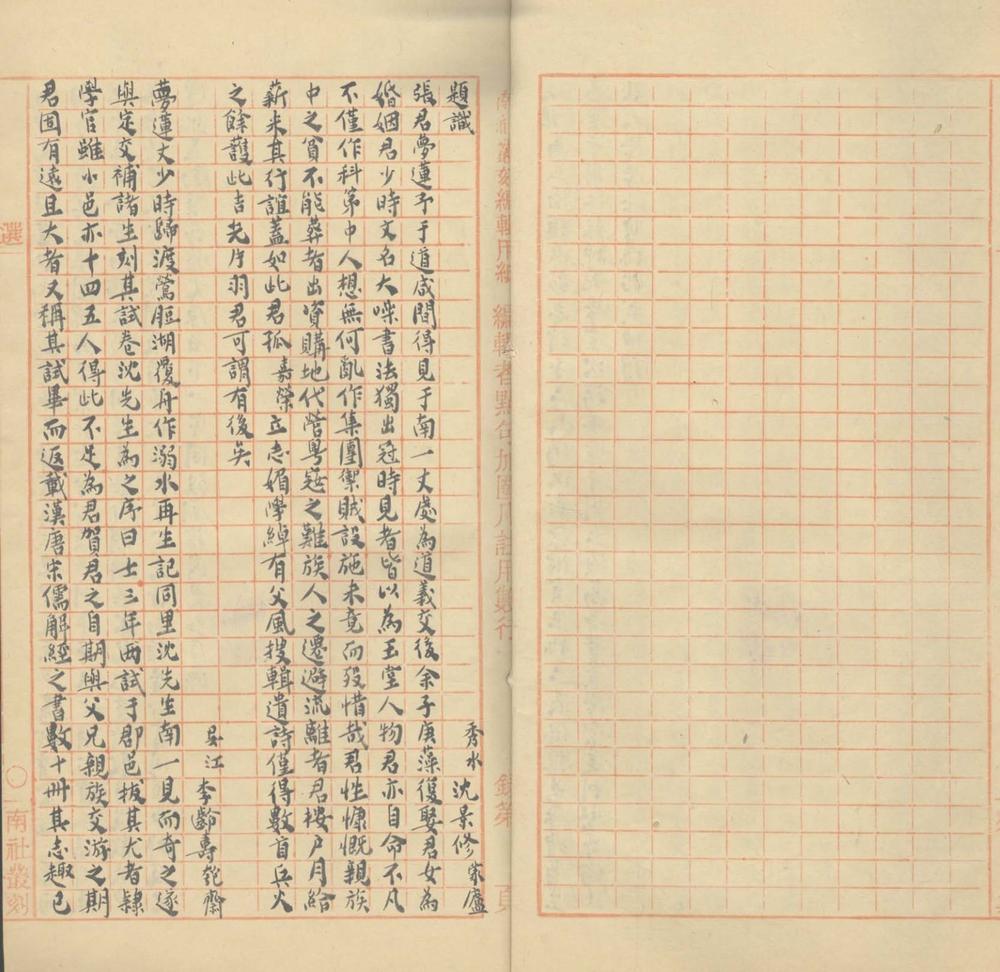 題識
秀水 沈景修 蒙廬
張君夢蓮予于道咸間得見于南一丈處為道義交後余子庚藻復娶君女為
婚姻君少時文名大噪書法獨出冠時見者皆以為玉堂人物君亦自命不凡
不僅作科第中人想無何亂作集團禦賊設施未竟而歿惜哉君性慷慨親族
中之貧不能葬者出資購地代營粵寇之難族人之遷避流離者君按戶月給
薪米其行誼蓋如此君孤嘉榮立志媚學綽有父風搜輯遺詩僅得數首兵火
之餘護此吉光片羽君可謂有後矣
吳江 李齡壽 匏齋
夢蓮丈少時歸渡鶯脰湖覆舟作溺水再生記同里沈先生南一見而奇之遂
與定交補諸生刻其試卷沈先生為之序曰士三年兩試于郡邑拔其尤者隸
學官雖小邑亦十四五人得此不足為君賀君之自期與父兄親族交游之期
君固有遠且大者又稱其試畢而返載漢唐宋儒解經之書數十冊其志趣已
選
〇
南社叢刻
南社叢刻編輯用紙 編輯者點句加圈